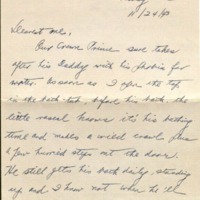 11/24/43
Dearest one,
Our Crown Prince sure takes
after his Daddy with his phobia for
water. As soon as I open the tap
in the bath tub before his bath the
little rascal knows it's his bathing
time and makes a wild crawl plus
a few hurried steps out the door.
He still gets his bath daily, standing
up and I have not when he'll